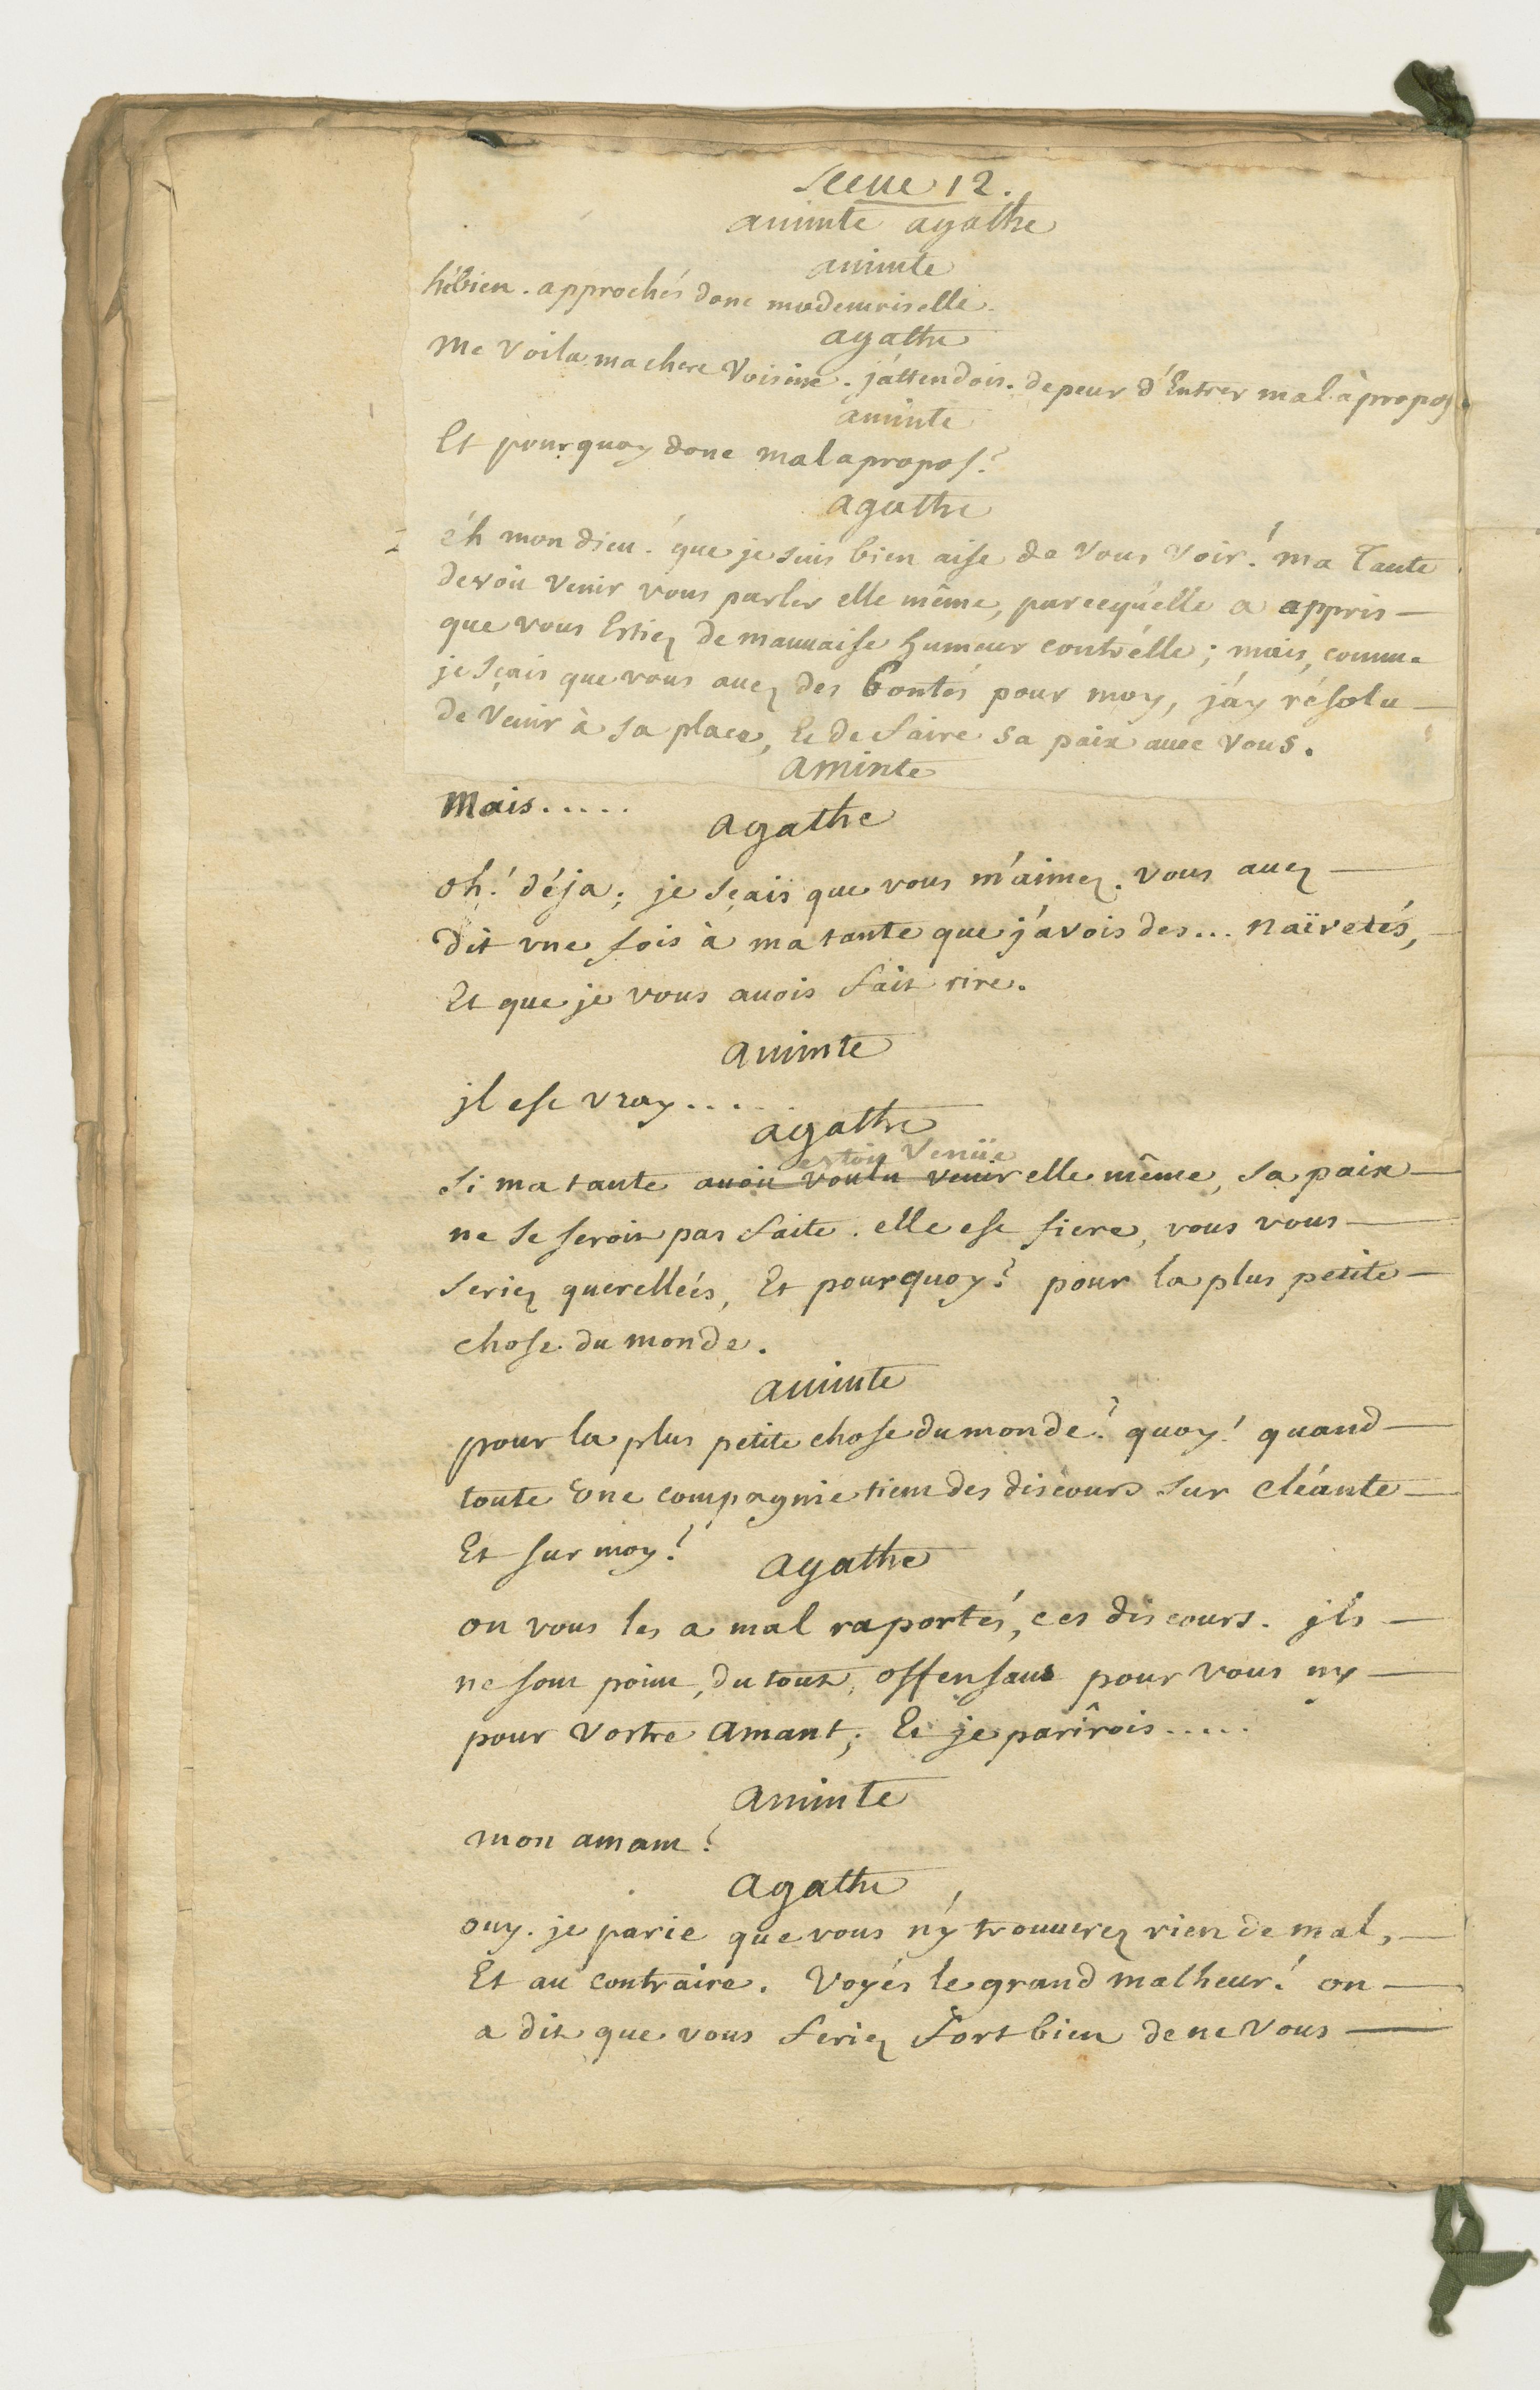 Scene 12.
aminte agathe
aminte
hébien. approchés donc mademoiselle.
agathe
Me Voila ma chere Voisine. j'attendois. de peur d'Entrer mal à propos
aminte
Et pourquoy donc mal apropos?
agathe
éh mon dieu. que je suis bien aise de Vous Voir! ma Tante
devoit Venir vous parler elle même, parcequ'elle a appris —
que vous Estiez de mauuaise humeur contr'elle; mais, comme
je sçais que vous auez des bontés pour moy, j'ay résolu —
de Venir à sa place, Et de faire sa paix auec Vous.
aminte
Mais.....
agathe
oh! déja; je sçais que vous m'aimez. vous auez —
dit vne fois à ma tante que j'avois des... naïvetés, —
Et que je vous auois fait rire.
aminte
jl est vray....
agathe
estoit Venüe
si ma tante auoit voulu venir elle même, sa paix —
ne se seroit pas faite. elle est fiere, vous vous —
seriez querellées, Et pourquoy? pour la plus petite —
chose du monde.
aminte
pour la plus petite chose du monde? quoy! quand —
toute vne compagnie tient des discours sur cléante —
Et sur moy?
agathe
on vous les a mal raportés, ces discours. jls —
ne sont point, du tout, offensans pour vous ny —
pour vostre amant; Et je parîrois.....
aminte
mon amant?
agathe
ouy. je parie que vous n'y trouuerez rien de mal, —
Et au contraire. Voyés le grand malheur! on —
a dit que vous feriez fort bien de ne vous —